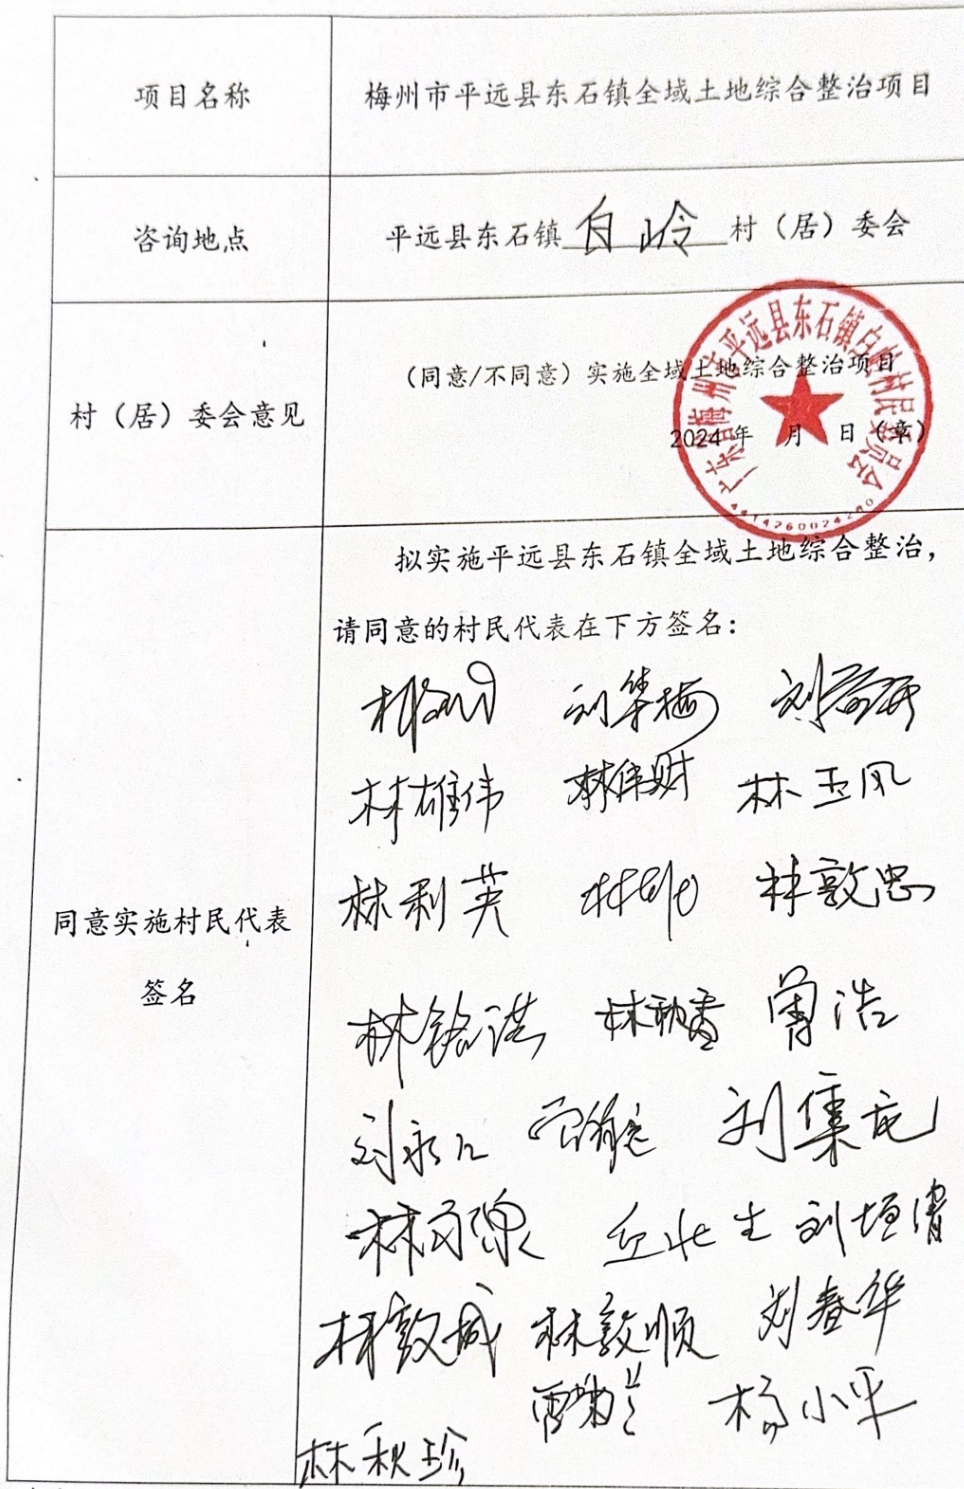 项目名称
梅州市平远县东石镇全域土地综合整治项目
咨询地点
平远县东石镇白岭村（居）委会
村（居）委会意见
（同意/不同意）实施全域土地综合整治项目
2024年 月 日（章）
广东省梅州市平远县东石镇白岭村民委员会
同意实施村民代表
签名
拟实施平远县东石镇全域土地综合整治，
请同意的村民代表在下方签名：
刘华梅
林雄伟 林伟财 林玉风
林利英 林敦忠
林铭洪 曾浩
刘永 刘集龙
刘垣清
林敦城 林敦顺 刘春华
杨小平
林秋珍